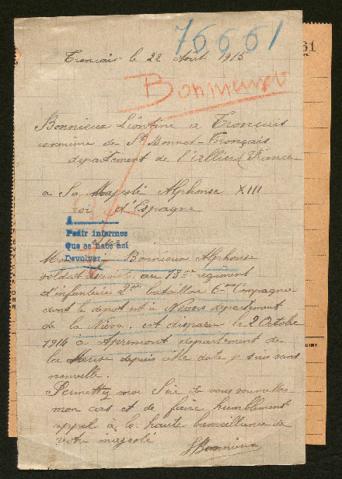 75661
61
Tronçais le 22 Août 1915
Bonnieux
Bonnieux Léontine à Tronçais
commune de St Bonnet-Tronçais
département de l'Allier (France
a Sa Majesté Alphonse XIII
roi d'Espagne
A
Pedir informes
Que se hace aci
Devolver
Mon Bonnieux Alphonse
soldat au 13e régiment
d'infanterie 2me bataillon 6me Compagnie
dont le dépôt est à Nevers département
de la Nièvre, est disparu le 2 Octobre
1914 à Apremont département de
la Meuse depuis cette date je suis sans
nouvelle.
Permettez moi Sire de vous
mon cas et de faire humblement
appel à la haute bienveillance de
votre majesté
Bonnieux